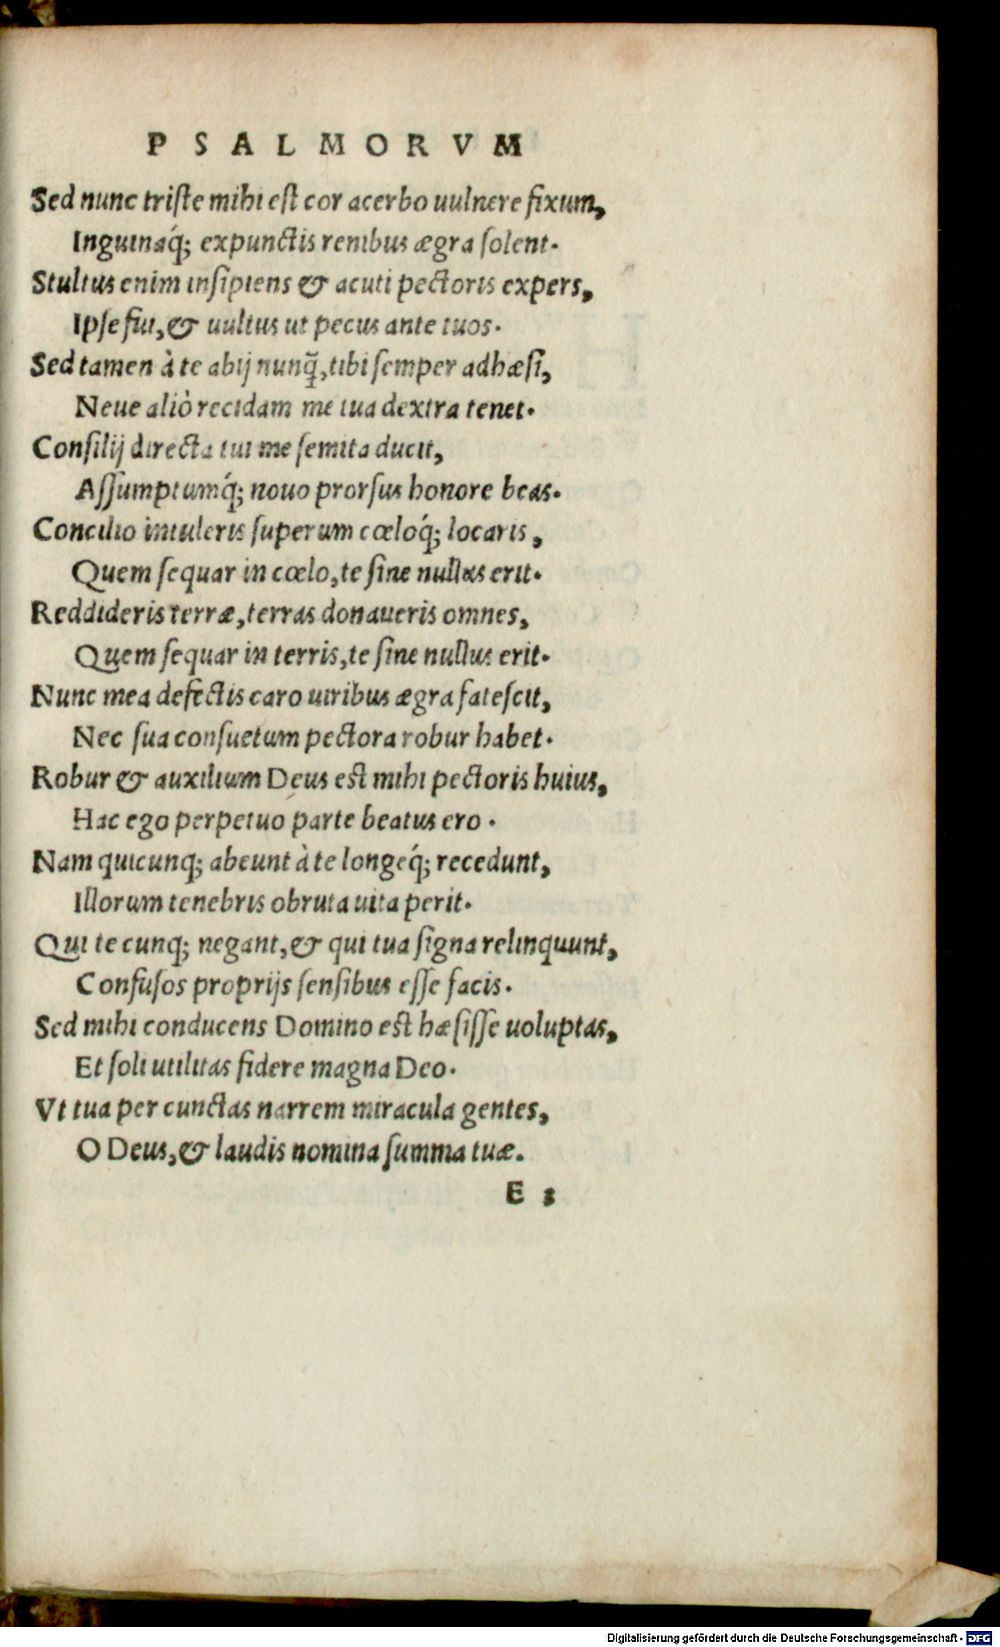 PSALMORVM
Sed nunc triste mihi est cor acerbo uulnere fixum,
Inguinaq́; expunctis renibus ægra solent.
Stultus enim insipiens & acuti pectoris expers,
Ipse fui, & uultus ut pecus ante tuos.
Sed tamen à te abij nunq̃, tibi semper adhæsi,
Neue aliò recidam me tua dextra tenet.
Consilij directa tui me semita ducit,
Assumptumq́; nouo prorsus honore beas.
Concilio intuleris superum cœloq́; locaris,
Quem sequar in cœlo, te sine nullus erit.
Reddideris terræ, terras donaueris omnes,
Quem sequar in terris, te sine nullus erit.
Nunc mea defectis caro uiribus ægra fatescit,
Nec sua consuetum pectora robur habet.
Robur & auxilium Deus est mihi pectoris huius,
Hac ego perpetuo parte beatus ero.
Nam quicunq; abeunt à te longeq́; recedunt,
Illorum tenebris obruta uita perit.
Qui te cunq; negant, & qui tua signa relinquunt,
Confusos proprijs sensibus esse facis.
Sed mihi conducens Domino est hæsisse uoluptas,
Et soli utilitas fidere magna Deo.
Vt tua per cunctas narrem miracula gentes,
O Deus, & laudis nomina summa tuæ.
E 3
Digitalisierung gefördert durch die Deutsche Forschungsgemeinschaft - DFG